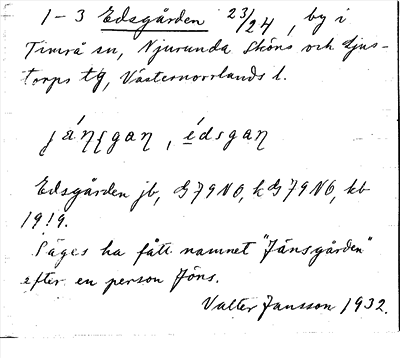 1-3 Edsgården 23/24, by i
Timrå sn, Njurunda Sköns och Ljus-
torps tg, Västernorrlands l.
jánsgaŋ, édsgaŋ
Edsgården jb, G79NO, kG79NO, kb
1919.
Säges ha fått namnet "Jänsgården"
efter en person Jöns.
Valter Jansson 1932.